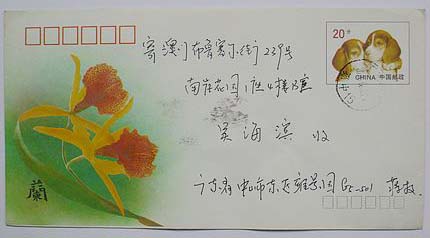 20分
CHINA 中国邮政
寄 澳门布鲁塞尔街239号
南岸花园1座4楼B座
吴海滨 收
蘭
广东省中山市东区雅景园 薛毅